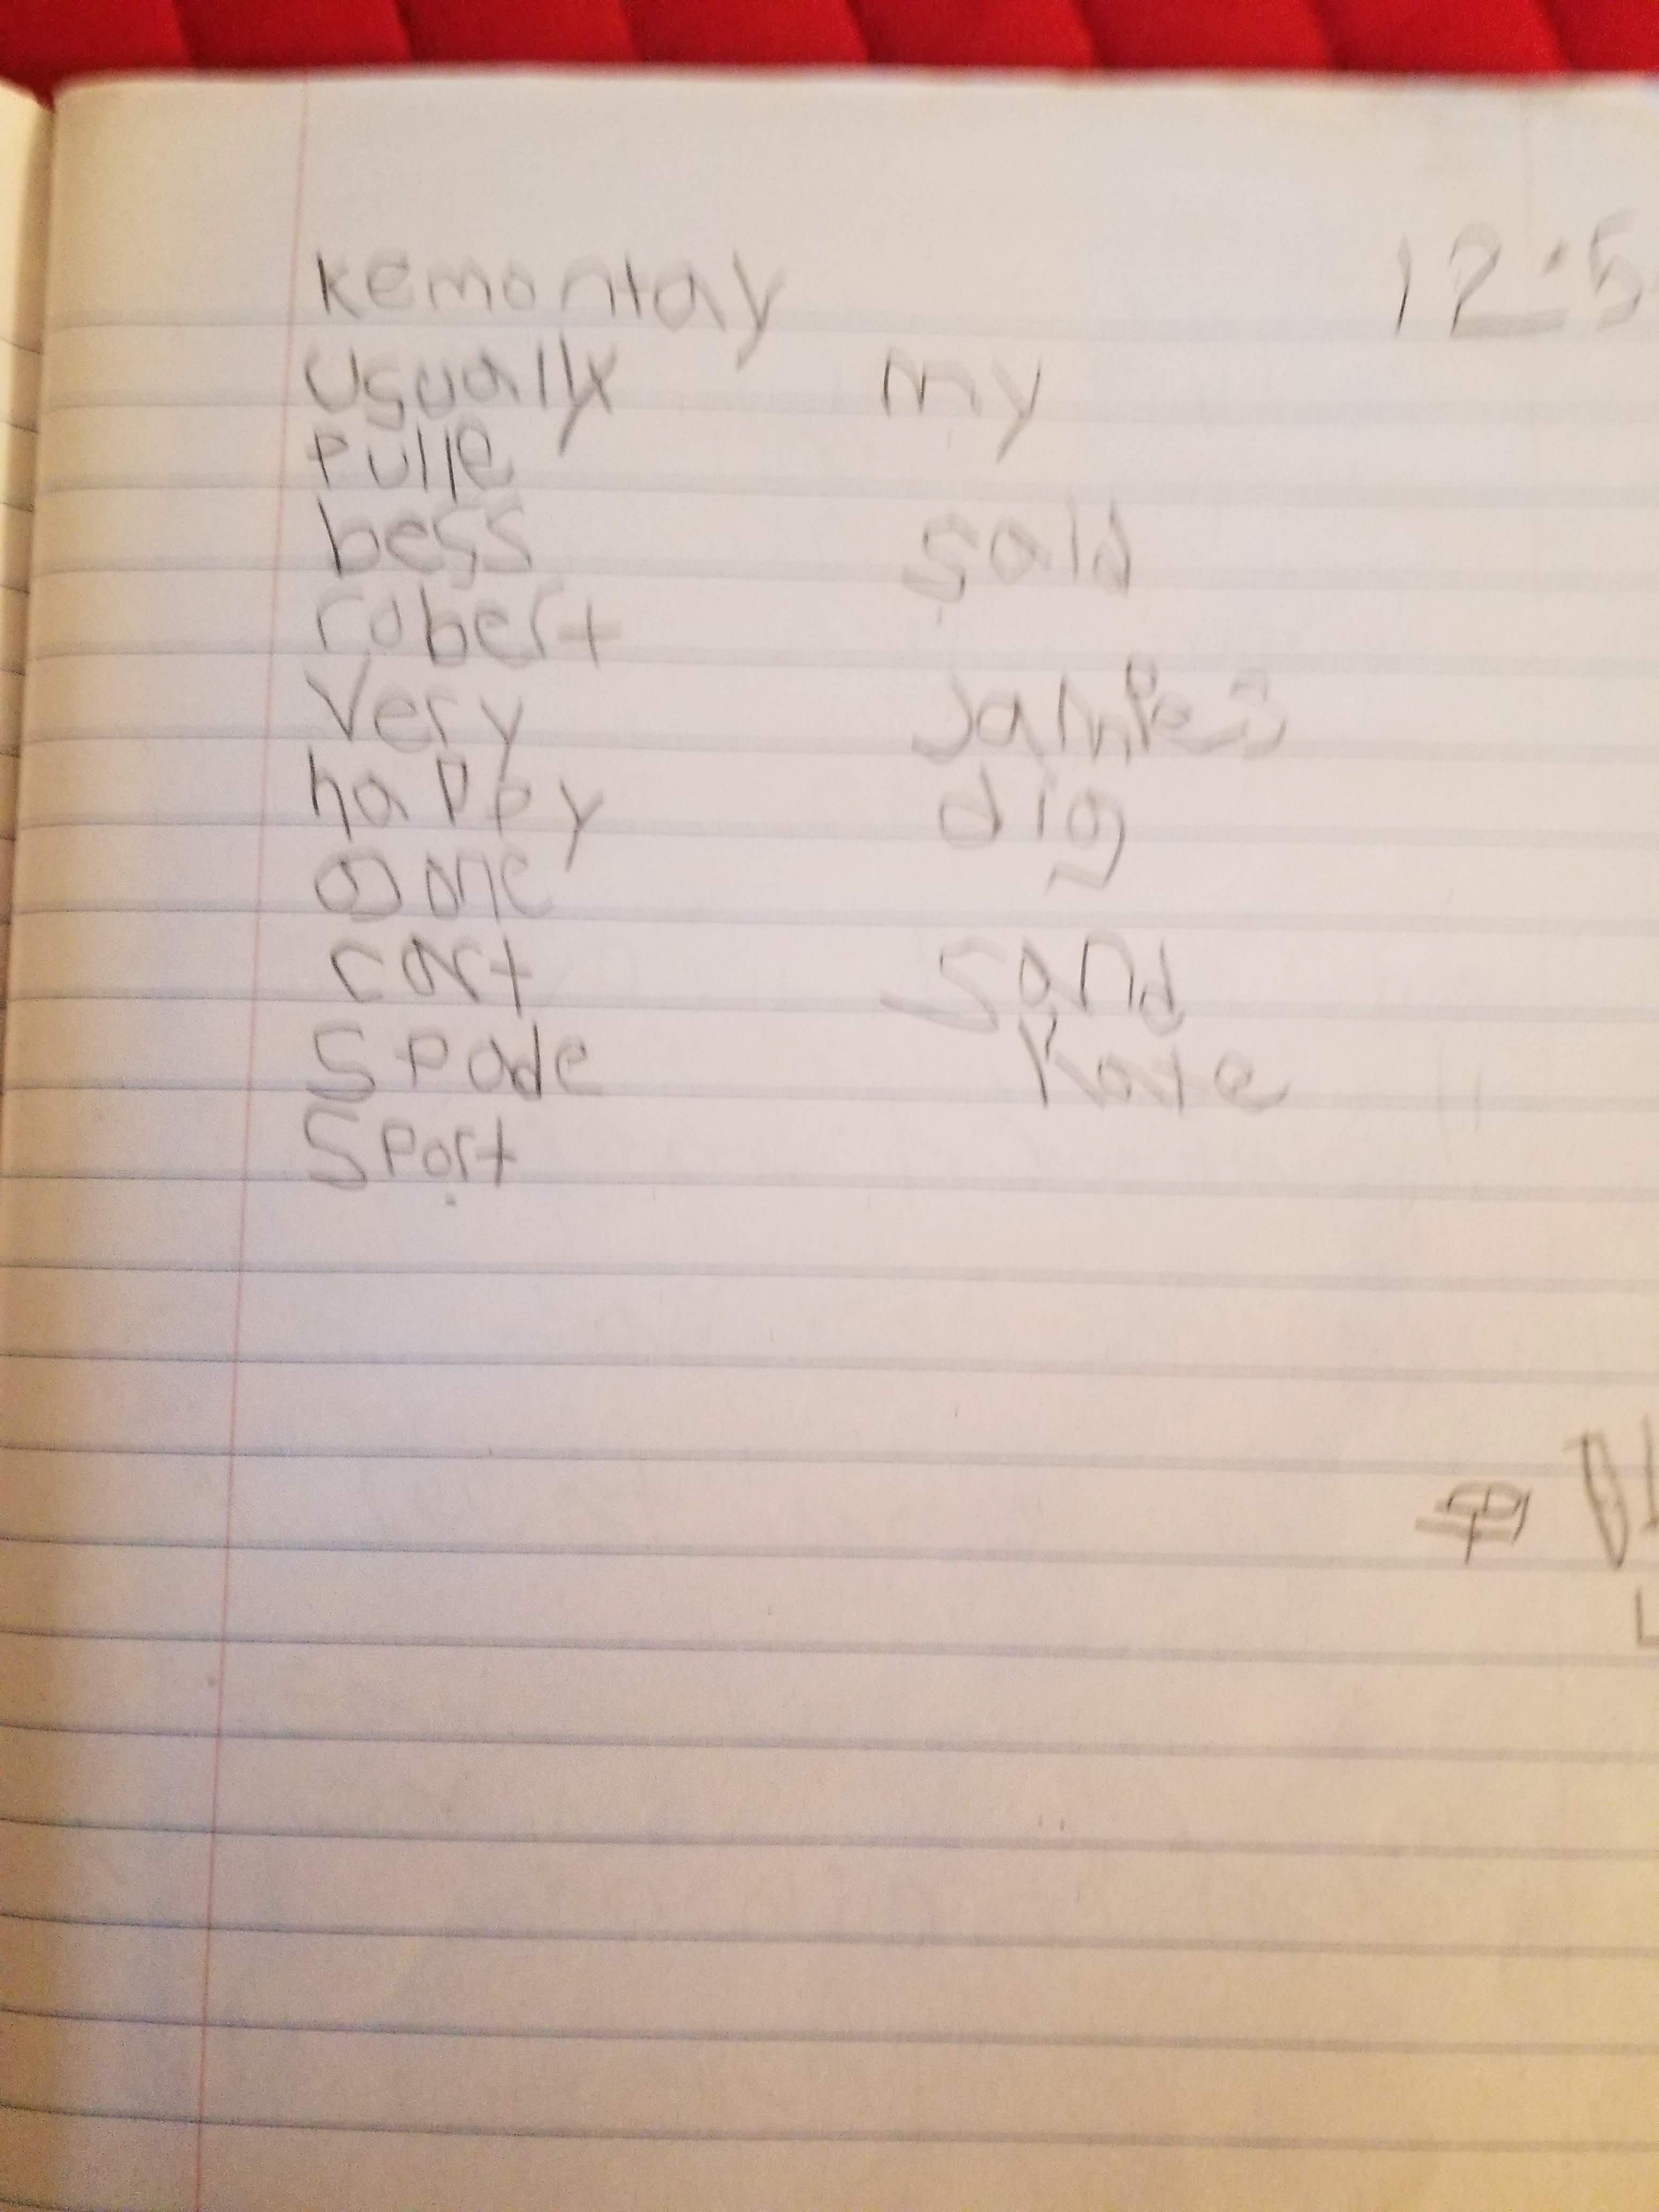 kemontay 12-5
usually my
pulle
bess said
robert
Very James
happy dig
gone
cart sand
spade Kate
Sport